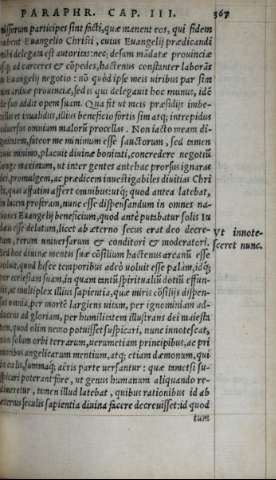 PARAPHR. CAP. III. 367
missorum participes sint facti, quæ manent eos, qui fidem
habent Euangelio Christi, cuius Euangelij prædicandi
mihi delegata est autoritas: nec desum mādatæ prouinciæ
usq; ad carceres & cōpedes, hactenus constanter laborās
in Euangelij negotio: nō quòd ipse meis uiribus par sim
tam arduæ prouinciæ, sed is qui delegauit hoc munus, idē
de suo addit opem suam. Qua fit ut meis præsidijs imbe-
cillis et inualidus, illius beneficio fortis sim atq; intrepidus
aduersus omnium malorū procellas. Non iacto meam di-
gnitatem, fateor me minimum esse sanctorum, sed tamen
huic minimo, placuit diuinæ bonitati, concredere negotiū
longe maximum, ut inter gentes antehac prorsus ignaras
dei, promulgem, ac prædicem inuestigabiles diuitias Chri
sti, quas affatim affert omnibus: utq; quod antea latebat,
in lucem proferam, nunc esse dispensandum in omnes na-
tiones Euangelij beneficium, quod antè putabatur solis Iu
dæis esse delatum, licet ab æterno secus erat deo decre-
tum, rerum uniuersarum & conditori & moderatori.
Sed hoc diuinæ mentis suæ cōsilium hactenus arcanū esse
uoluit, quod hisce temporibus adeò uoluit esse palam, idq;
per ecclesiam suam, in quam tantū spiritualiū dotū effun-
dit, ut multiplex illius sapientia, quæ miris cōsilijs dispen-
sat omnia, per mortē largiens uitam, per ignominiam ad-
ducens ad gloriam, per humilitatem illustrans dei maiesta
tem, quod olim nemo potuisset suspicari, nunc innotescat,
non solum orbi terrarum, uerumetiam principibus, ac pri
moribus angelicarum mentium, atq; etiam dæmonum, qui
in cœlis, summaq; aëris parte uersantur: quæ tametsi su-
spicari poterant fore, ut genus humanum aliquando re-
dimeretur, tamen illud latebat, quibus rationibus id ab
æternis seculis sapientia diuina facere decreuisset: id quod
tum
Vt innote-
sceret nunc.